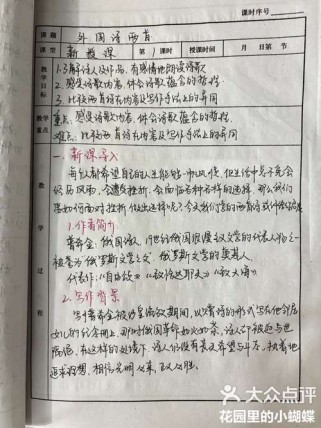 课时序号
课题 外国诗两首
课型 新授课 第1课时 授课时间 月 日第 节
教学目标
1.了解诗人及作品,有感情地朗读诗歌
2.感受诗歌内容,体会诗歌蕴含的哲理
3.比较两首诗在内容及写作手法上的异同
教学重点
重点:感受诗歌内容,体会诗歌蕴含的哲理
难点:比较两首诗在内容及写作手法上的异同
教学过程
一、新课导入
每个人都希望自己的人生能够一帆风顺,但生活中总不免会
经历风雨,会遭受挫折,会面临各种各样的选择,那么我们
应如何面对挫折 做出选择呢?今天我们学的两首诗或许能
1.作者简介
普希金,俄国诗人,19世纪俄国浪漫主义文学的代表人物之一
被誉为"俄罗斯文学之父" 俄罗斯文学的奠基人。
代表作:《自由颂》《致恰达耶夫》《致大海》
2.写作背景
写于普希金被沙皇流放期间,以赠诗的形式写在他邻居
女儿的纪念册上,那时俄国革命如火如荼,诗人却被迫与世
隔绝,在这样的处境下,诗人仍没有丧失希望与斗志,执着地
追求理想,相信光明必来,正义必胜。
大众点评
花园里的小蝴蝶